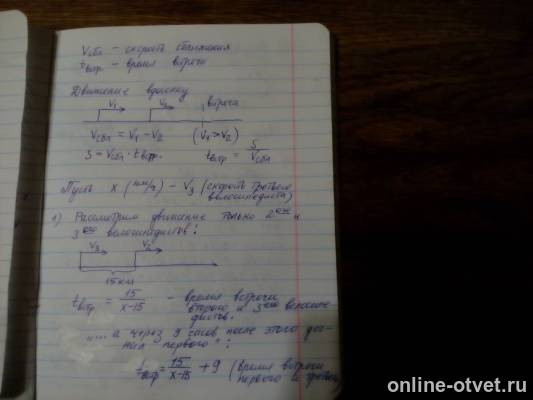 Vсбл – скорость сближения
tвстр – время встречи
Движение вдогонку
V₁ V₂ встреча
Vсбл = V₁ – V₂ (V₁ > V₂)
S = Vсбл · tвстр. tвстр = S / Vсбл
Пусть x (км/ч) – V₃ (скорость третьего
велосипедиста)
1) Рассмотрим движение только 2ого и
3его велосипедистов:
V₃ V₂
15 км
tвстр = 15 / x-15 – время встречи
второго и 3его велосипе-
дистов.
„... а через 9 часов после этого дог-
нал первого":
tвстр = 15 / x-15 + 9 (время встречи
первого и третьего
online-otvet.ru